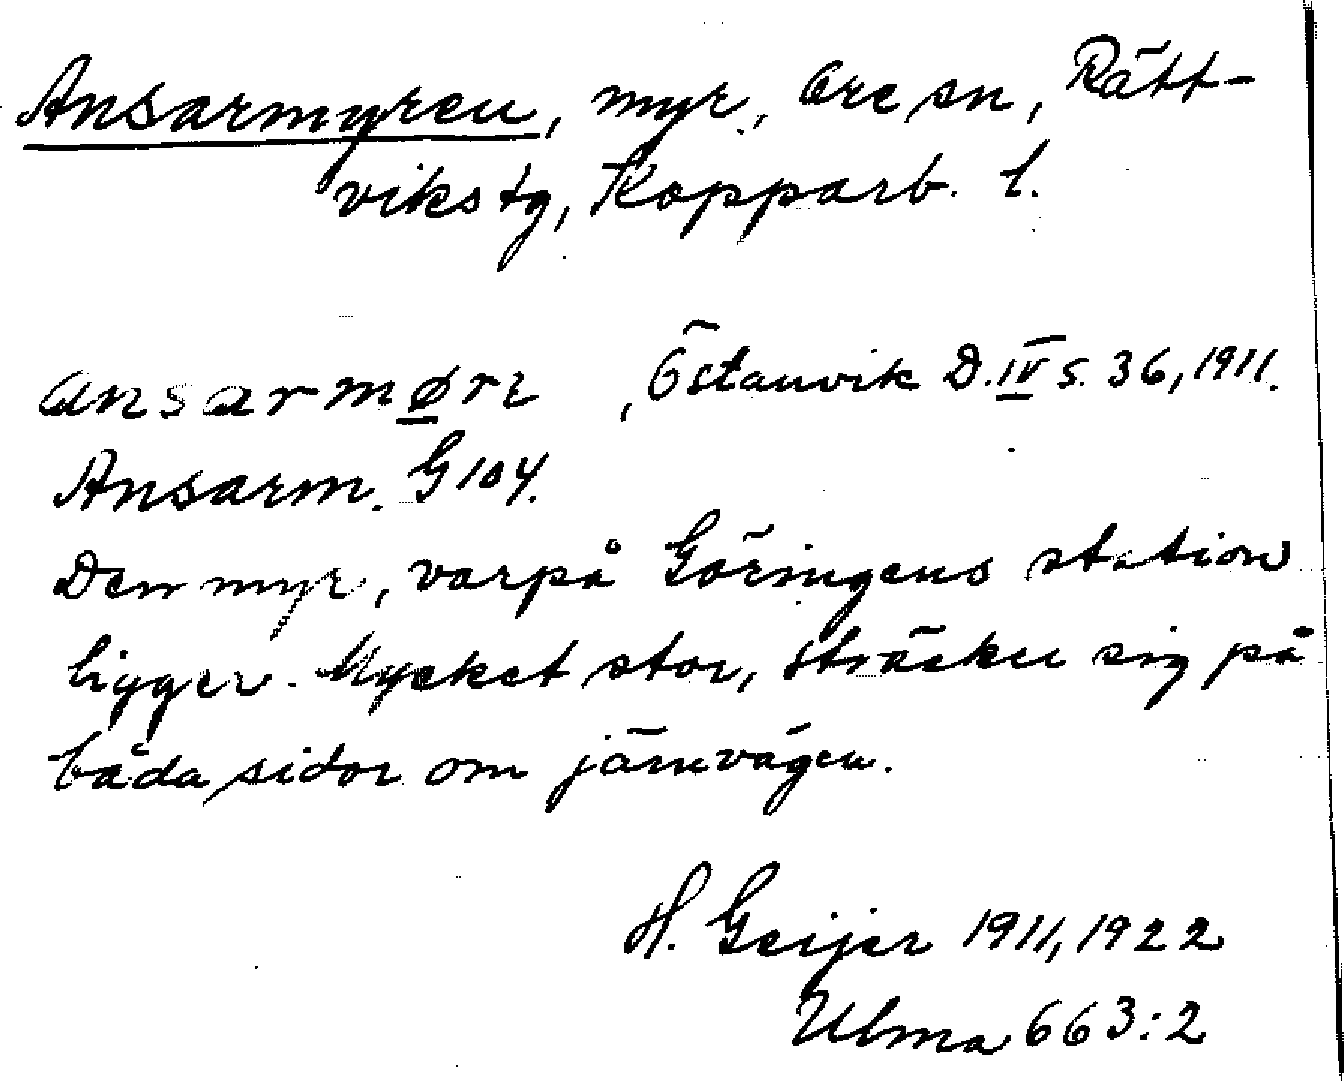 Ansarmyren, myr, Ore sn, Rätt-
vikstg, Kopparb. l.
ansarmøre, Östanvik D.IV s. 36, 1911.
Ansarm. G 104.
Den myr, varpå Göringens station
ligger. Mycket stor, sträcker sig på
båda sidor om järnvägen.
H. Geijer 1911, 1922
Ulma 663:2